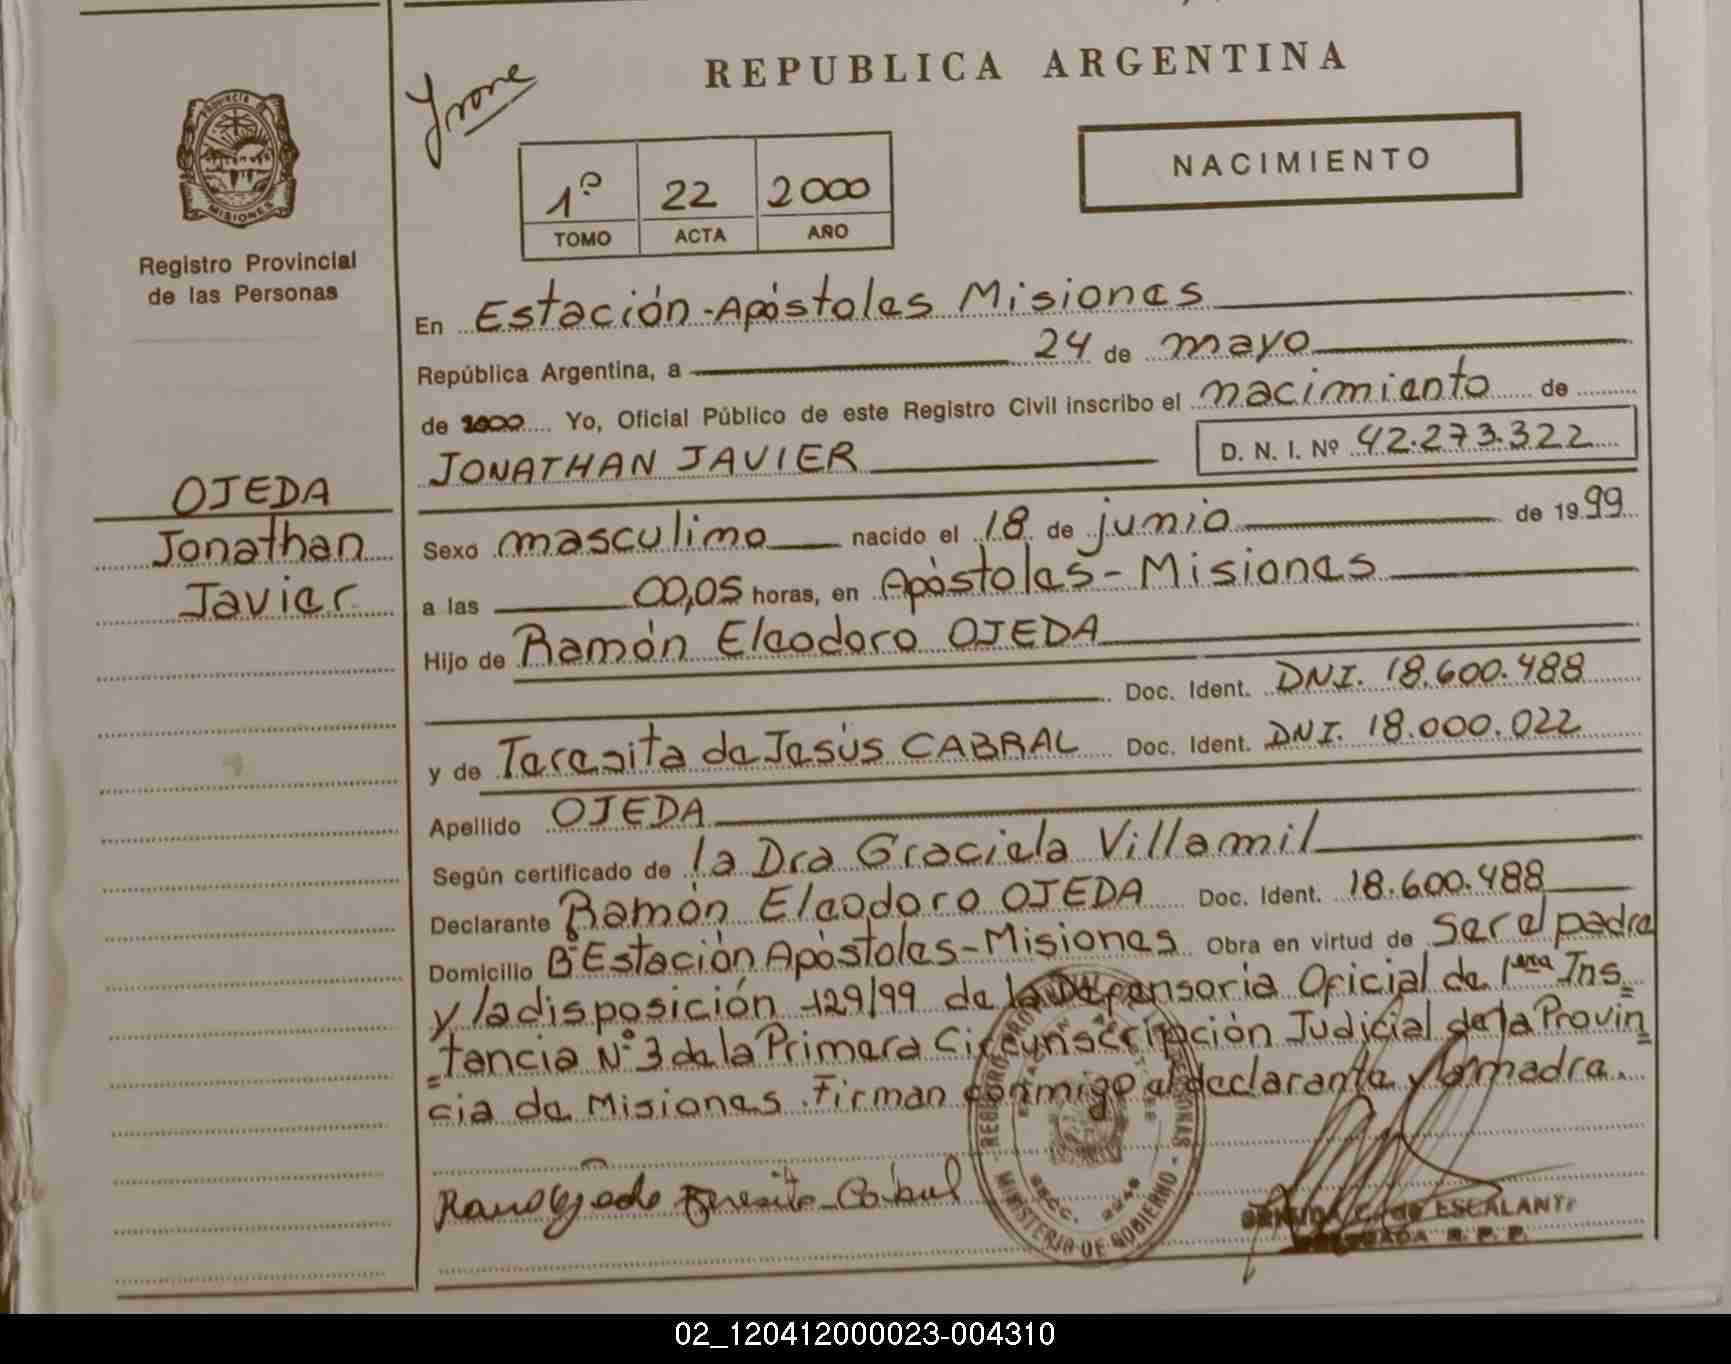 REPUBLICA ARGENTINA
Irone
PROVINCIA DE
MISIONES
Registro Provincial
de las Personas
NACIMIENTO
1º 22 2000
TOMO ACTA AÑO
En Estación-Apóstoles Misiones
República Argentina, a 24 de mayo
de 2000 Yo, Oficial Público de este Registro Civil inscribo el nacimiento de
JONATHAN JAVIER D. N. I. Nº 42.273.322
OJEDA
Jonathan
Javier
Sexo masculino nacido el 18 de junio de 1999
a las 00,05 horas, en Apóstoles-Misiones
Hijo de Ramón Eleodoro OJEDA
Doc. Ident. DNI. 18.600.488
y de Teresita de Jesús CABRAL Doc. Ident. DNI. 18.000.022
Apellido OJEDA
Según certificado de la Dra Graciela Villamil
Declarante Ramón Eleodoro OJEDA Doc. Ident. 18.600.488
Domicilio Bº Estación Apóstoles-Misiones Obra en virtud de ser el padre
y la disposición 129/99 de la Defensoria Oficial de 1era Ins
=tancia Nº 3 de la Primera Circunscripción Judicial de la Provin
=cia de Misiones. Firman conmigo el declarante y la madre.
Ramon Ojeda Teresita Cabral
MINISTERIO DE GOBIERNO
ESCALANTE
R. P. P.
02_120412000023-004310